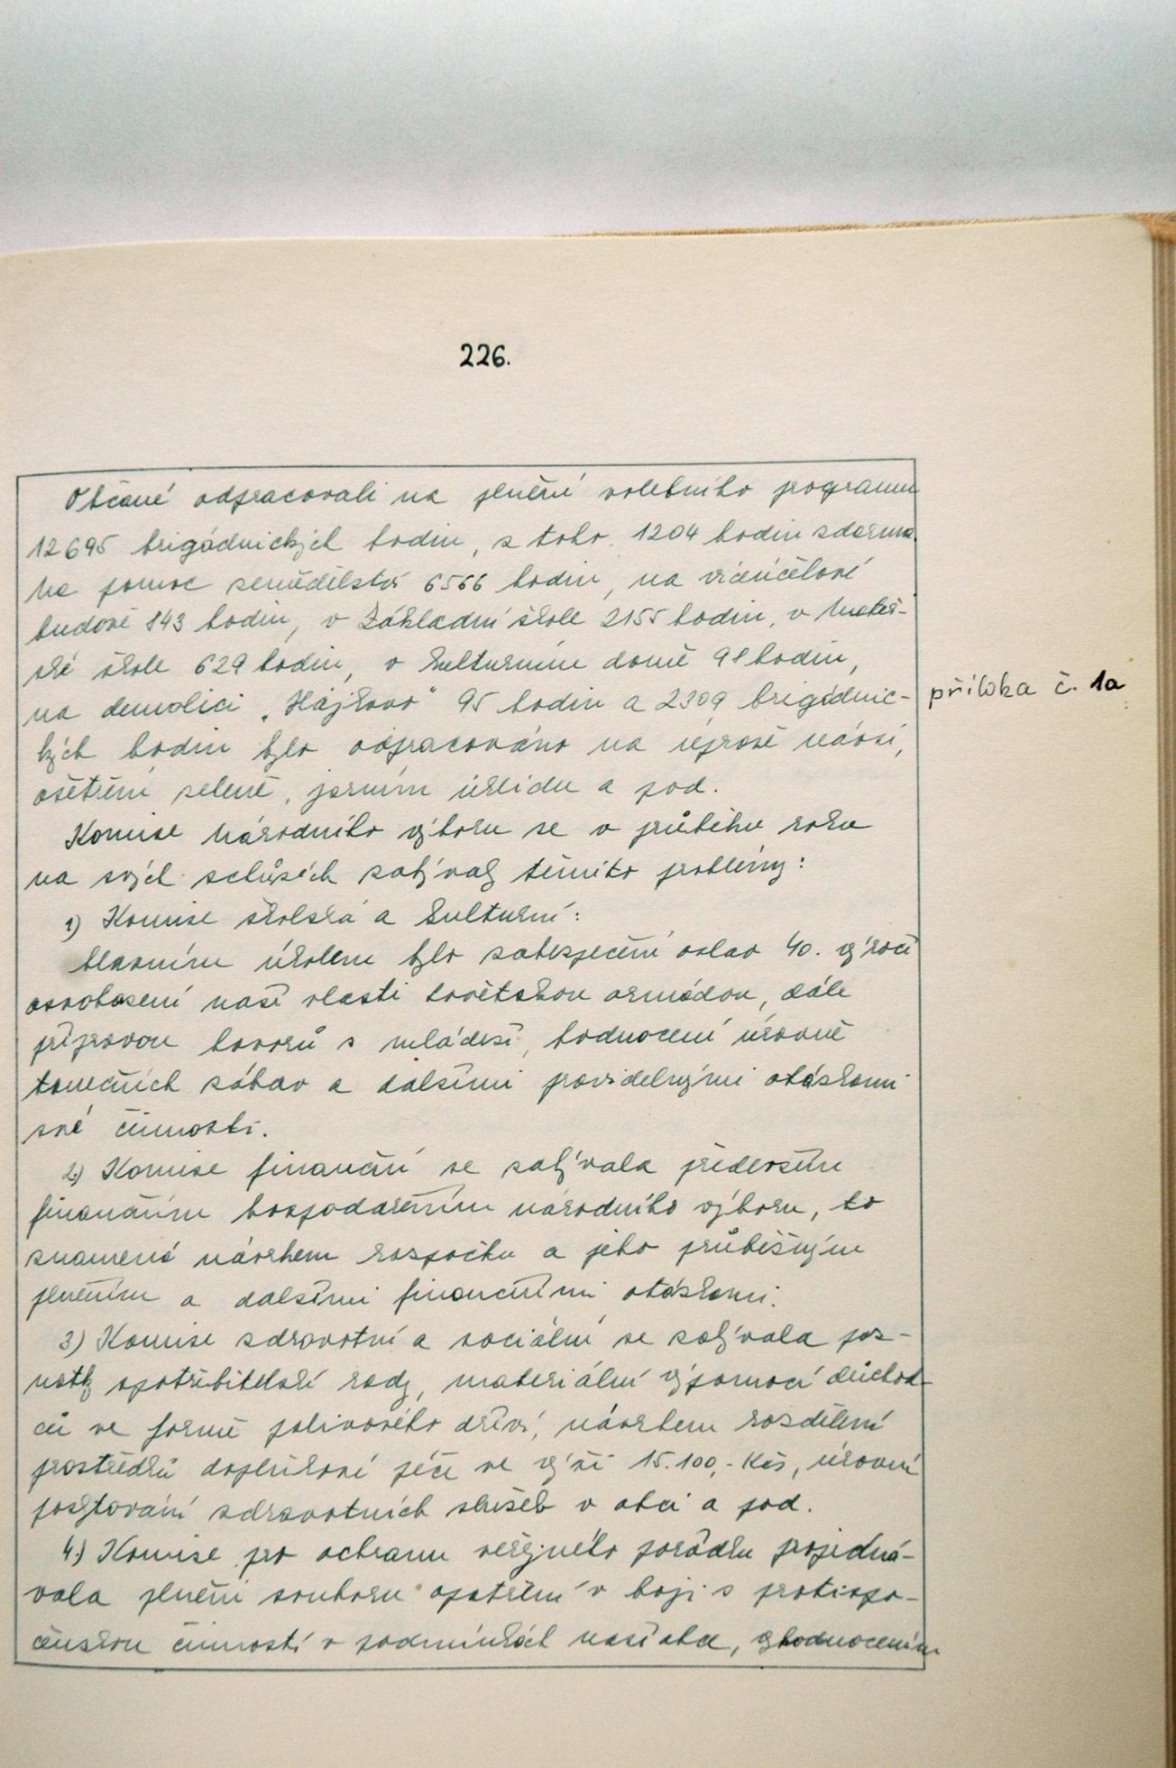 226.
Občané odpracovali na plnění volebního programu
12695 brigádnických hodin, z toho 1204 hodin zdarma.
Na pomoc zemědělství 6566 hodin, na víceúčelové
budově 843 hodin, v Základní škole 2155 hodin, v Mateř-
ské škole 629 hodin, v kulturním domě 98 hodin,
na demolici „Hájkovo" 95 hodin a 2309 brigádnic-
příloha č. 1a
kých hodin bylo odpracováno na úpravě návsi,
ošetření zeleně, jarním úklidu a pod.
Komise Národního výboru se v průběhu roku
na svých schůzích zabývaly těmito problémy:
1) Komise školská a kulturní:
hlavním úkolem bylo zabezpečení oslav 40. výročí
osvobození naší vlasti sovětskou armádou, dále
přípravou hovorů s mládeží, hodnocení úrovně
tanečních zábav a dalšími pravidelnými otázkami
své činnosti.
2) Komise finanční se zabývala především
finančním hospodařením národního výboru, to
znamená návrhem rozpočtu a jeho průběžným
plněním a dalšími finančními otázkami.
3) Komise zdravotní a sociální se zabývala poz-
natky spotřebitelské rady, materiální výpomocí důchod-
ců ve formě palivového dříví, návrhem rozdělení
prostředků doplňkové péče ve výši 15.100,- Kčs, úrovní
poskytování zdravotních služeb v obci a pod.
4) Komise pro ochranu veřejného pořádku projedná-
vala plnění souboru opatření v boji s protispo-
lečenskou činností v podmínkách naší obce, vyhodnocením